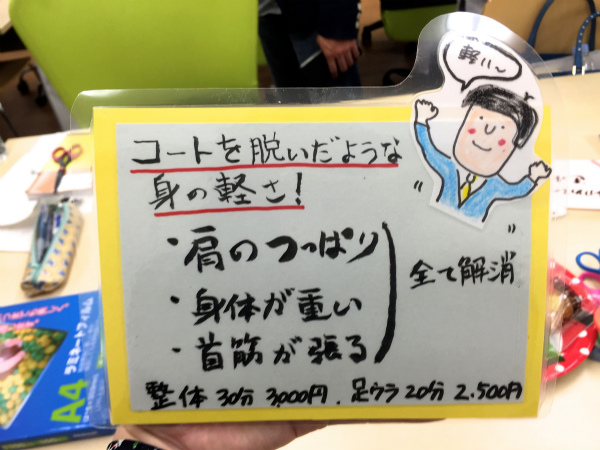 軽い〜
コートを脱いだような
身の軽さ!
・肩のつっぱり
・身体が重い
・首筋が張る
全て解消
整体 30分 3,000円、足ウラ 20分 2,500円
ラミネートフィルム
A4